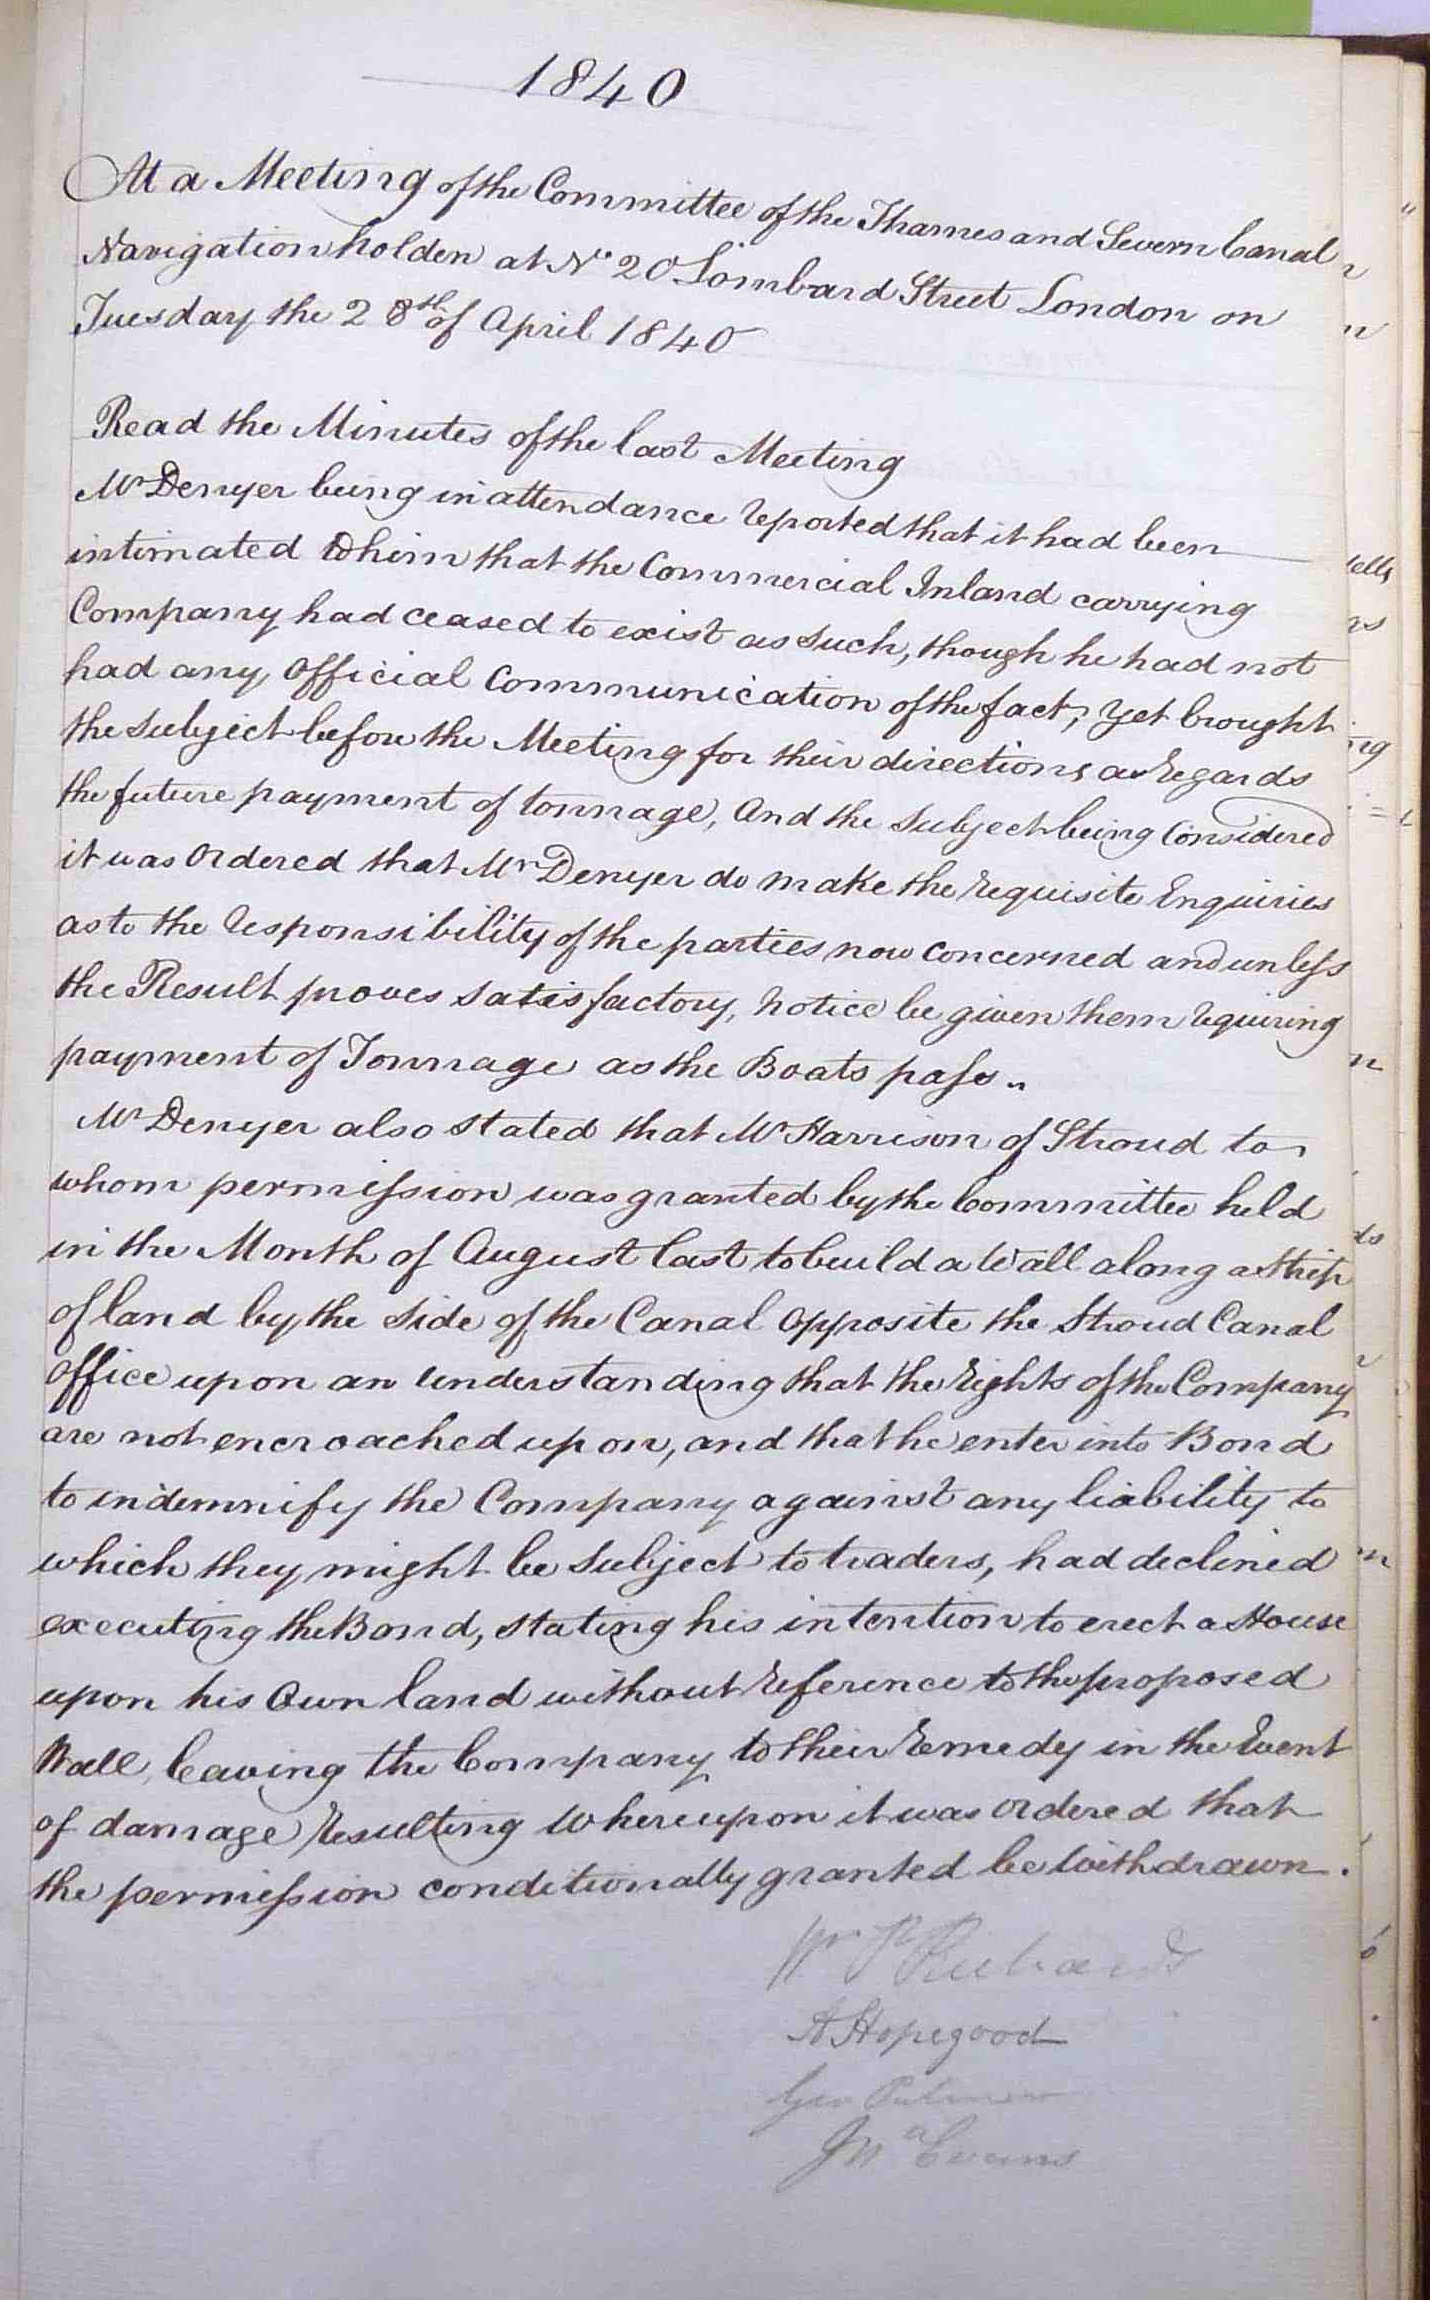 1840
At a Meeting of the Committee of the Thames and Severn Canal
Navigation holden at No 20 Lombard Street London on
Tuesday the 28th of April 1840
Read the Minutes of the last Meeting
Mr Denyer being in attendance reported that it had been
intimated to him that the Commercial Inland carrying
Company had ceased to exist as such, though he had not
had any Official Communication of the fact, yet brought
the subject before the Meeting for their directions as regards
the future payment of tonnage, And the subject being Considered
it was Ordered that Mr Denyer do make the requisite Enquiries
as to the responsibility of the parties now concerned and unless
the Result proves satisfactory, notice be given them requiring
payment of Tonnage as the Boats pass..
Mr Denyer also stated that Mr Harrison of Stroud to
whom permission was granted by the Committee held
in the Month of August last to build a Wall along a Strip
of land by the side of the Canal Opposite the Stroud Canal
Office upon an understanding that the rights of the Company
are not encroached upon, and that he enter into Bond
to indemnify the Company against any liability to
which they might be subject to traders, had declined
executing the Bond, stating his intention to erect a House
upon his Own land without reference to the proposed
Wall, leaving the Company to their remedy in the Event
of damage resulting Whereupon it was Ordered that
the permission conditionally granted be Withdrawn.
Wm P Richards
A Hopegood
Jno Evans
tells